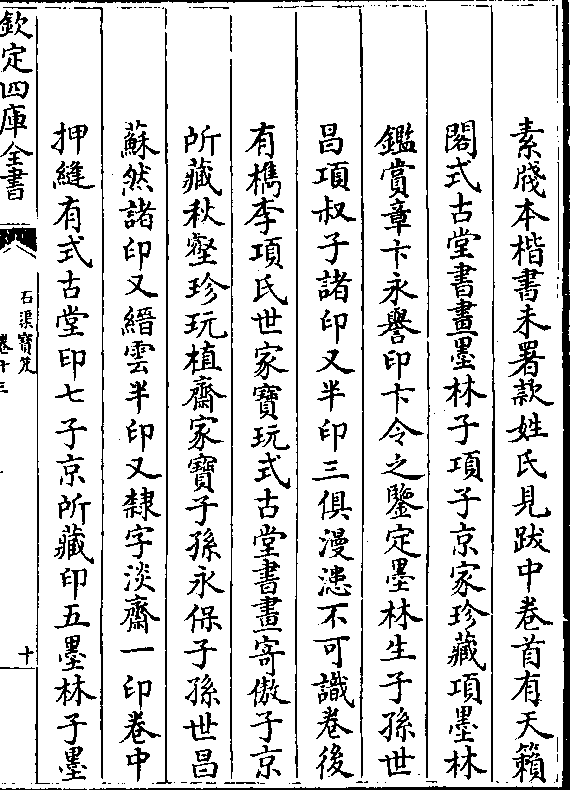 素牋本楷書未署款姓氏見跋中卷首有天籟
閣式古堂書畫墨林子項子京家珍藏項墨林
鑑賞章卞永譽印卞令之鑒定墨林生子孫世
昌項叔子諸印又半印三俱漫漶不可識卷後
有檇李項氏世家寶玩式古堂書畫寄傲子京
所藏秋壑珍玩植齋家寶子孫永保子孫世昌
蘇然諸印又縉雲半印又隸字淡齋一印卷中
押縫有式古堂印七子京所藏印五墨林子墨
欽定四庫全書
石渠寶笈
卷十三
十